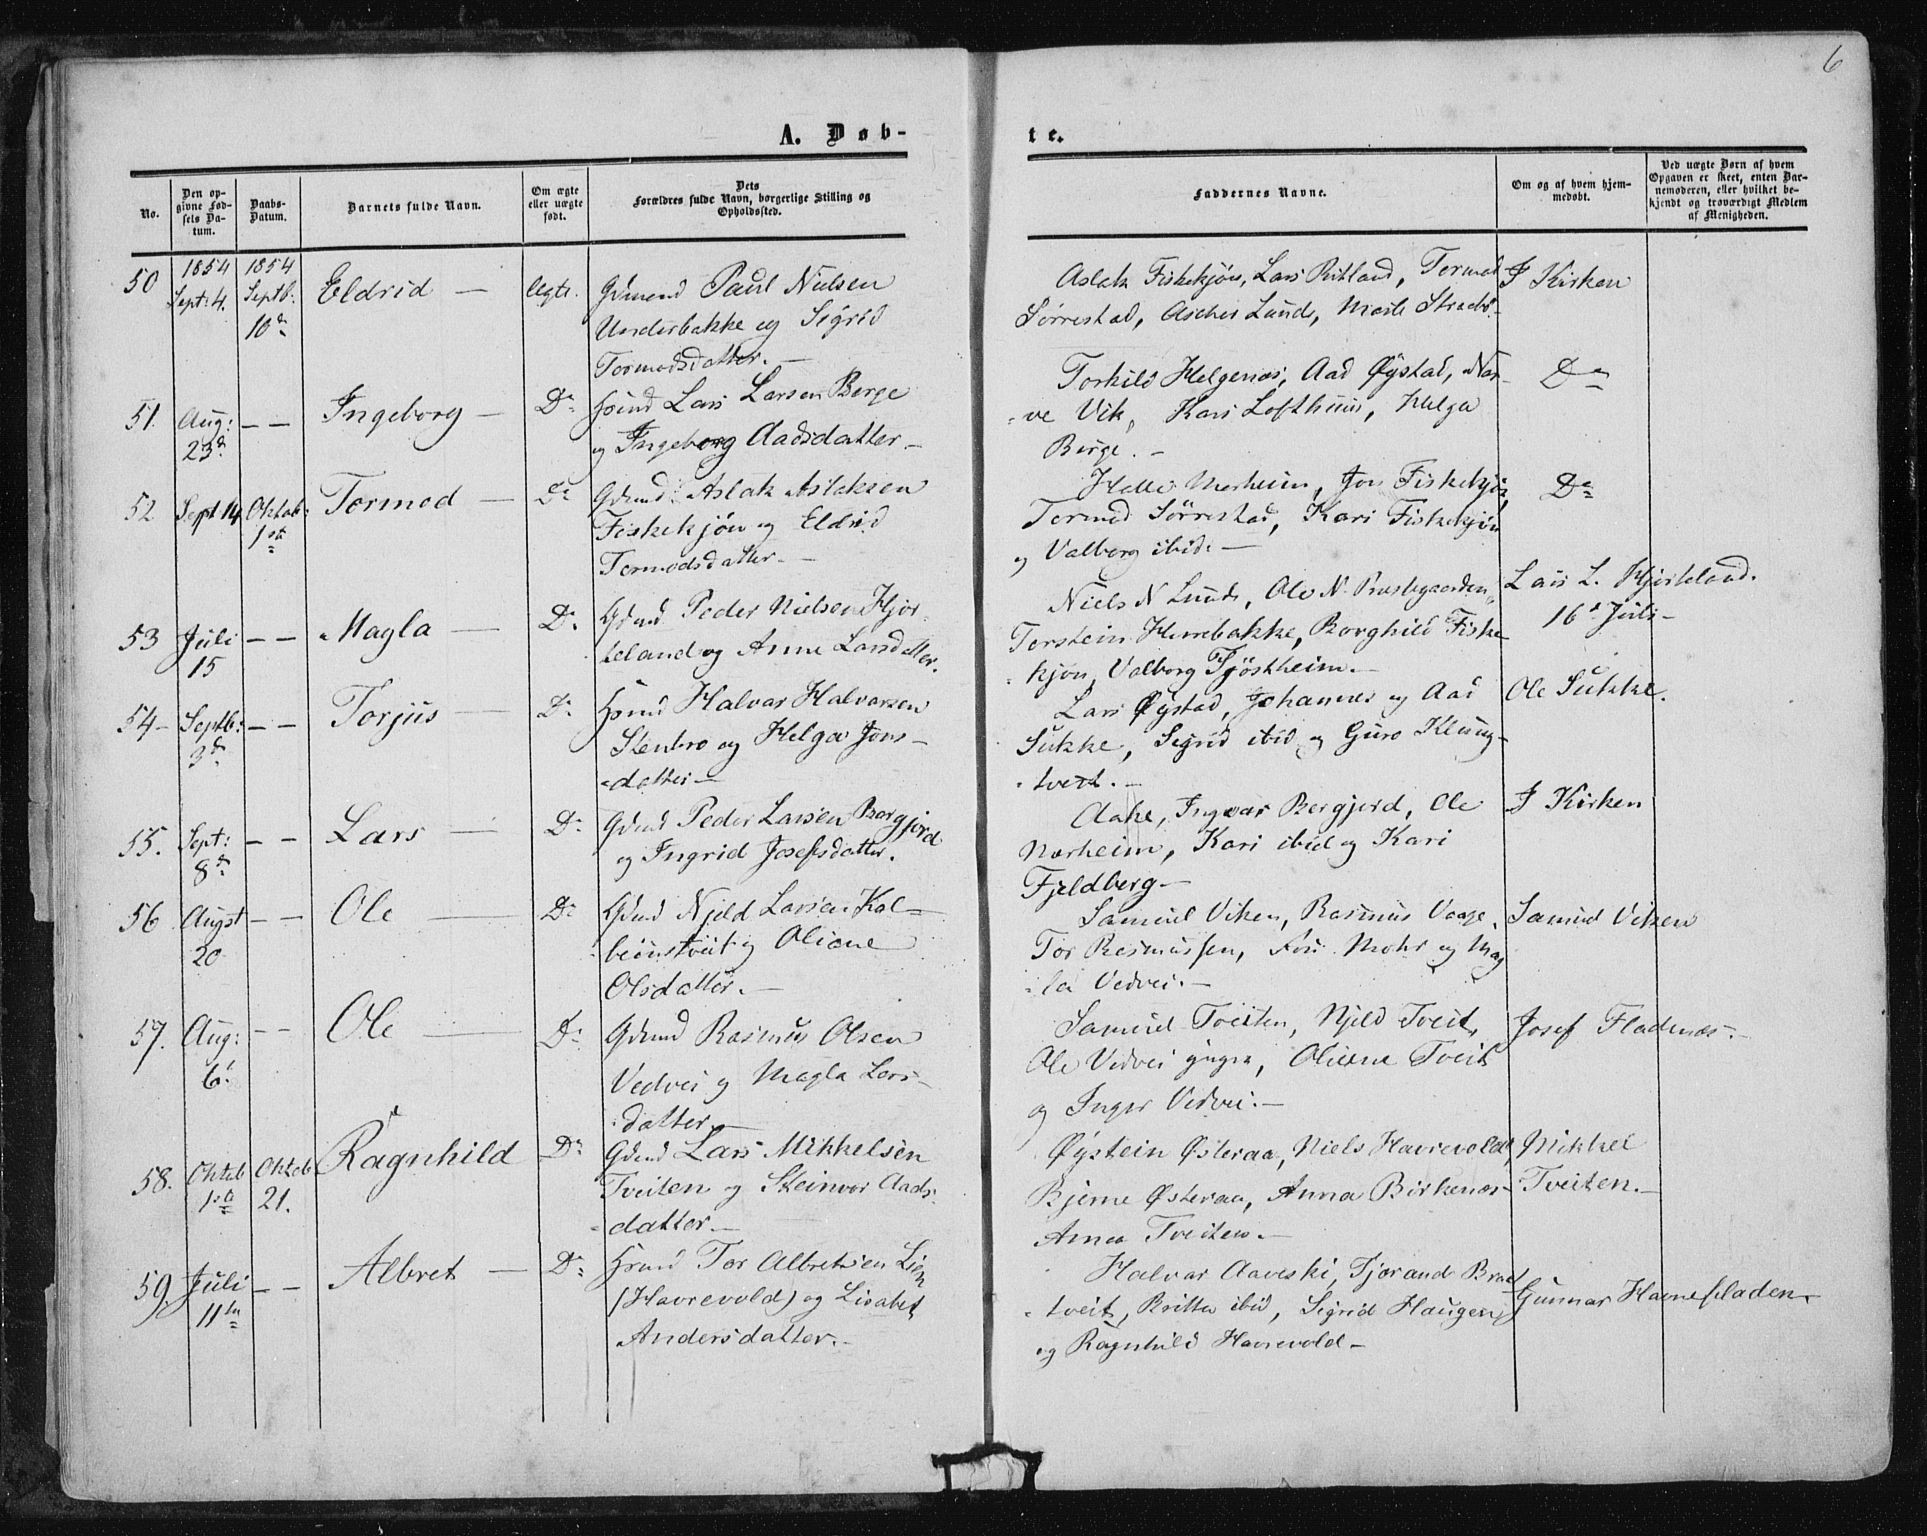 6
A. Døb-
te.
No.
Den op-
givne Fød-
sels Da-
tum.
Daabs-
Datum.
Barnets fulde Navn.
Om ægte
eller uægte
født.
Dets
Forældres fulde Navn, borgerlige Stilling og
Opholdssted.
Faddernes Navne.
Om og af hvem hjem-
medøbt.
Ved uægte Børn af hvem
Opgaven er skeet, enten Bar-
nemoderen, eller hvilket be-
kjendt og troværdigt Medlem
af Menigheden.
50
1854
Sept: 4.
1854
Septb:
10de
Eldrid —
Ægte.
Gdmand Paul Nielsen
Underbakke og Sigrid
Tormodsdatter. —
Aslak Fiskekjøn, Lars Ritland, Tormod
Sørrestad, Lunde,
I Kirken
51.
Aug:
23de
— —
Ingeborg —
Do
Lars Larsen Berge
og Ingeborg Aadsdatter —
Torkild Helgenæs, Aad Øystad, Nar-
-ve Vik, Kari Lofthuus, Helga
Berge. —
Do
52
Sept 14
Oktob:
1ste
Tormod —
Do
Gdmd: Aslak Aslaksen
Fiskekjøn og Eldrid
Tormodsdatter. —
Helle Norheim, Jon Fiskekjøn,
Tormod Sørrestad, Kari Fiskekjøn
og Valborg ibid: —
Do
53
Juli
15
— —
Magla —
Do
Gdmd Peder Nielsen Hjor-
teland og Anne Larsdatter.
Niels N Lunde, Ole N. Præstegaarden,
Torstein Herrebakke, Borghild Fiske-
-kjøn, Valborg Tjøstheim. —
Lars L. Hjorteland.
16de Juli —
54 —
Septb:
3de
— —
Torjus —
Do
Halvar Halvarsen
Stenbro og Helga Jons-
-datter —
Lars Øystad, Johannes og Aad
Sukke, Sigrid ibid og Guro Klung-
-tveit. —
Ole Sukke.
55.
Sept:
8de
— —
Lars —
Do
Gdmd Peder Larsen Bergjord
og Ingrid Josefsdatter.
Aake, Ingvar Bergjord, Ole
Norheim, Kari ibid og Kari
Fjeldberg —
I Kirken
56
Augst
20
— —
Ole —
Do
Gdmd Njeld Larsen Kol-
-beinstveit og Oliane
Olsdatter. —
Samuel Viken, Rasmus Vaage,
Tor Rasmussen, Mohr og Mag-
-la Vedvei. —
Samuel Viken
57.
Aug:
6te
— —
Ole —
Do
Gdmd Rasmus Olsen
Vedvei og Magla Lars-
-datter —
Samuel Tveiten, Njeld Tveit,
Ole Vedvei yngre, Oliane Tveit
og Inger Vedvei. —
Josef Fladenæs. —
58.
Oktob
1ste
Oktob
21.
Ragnhild
Do
Gdmd Lars Mikkelsen
Tveiten og Steinvor Aads-
-datter —
Øystein Østeraa, Niels Havrevold,
Bjerne Østeraa, Anna Birkenæs
Anna Tveiten. —
Mikkel
Tveiten. —
59.
Juli
11te
— —
Albret —
Do
Tor Albretsen Lien
(Havrevold) og Lisabet
Andersdatter. —
Halvar Aaveski, Tjorand Brat-
-tveit, Britta ibid, Sigrid Haugen,
og Ragnhild Havrevold —
Gunnar Havnefladen.